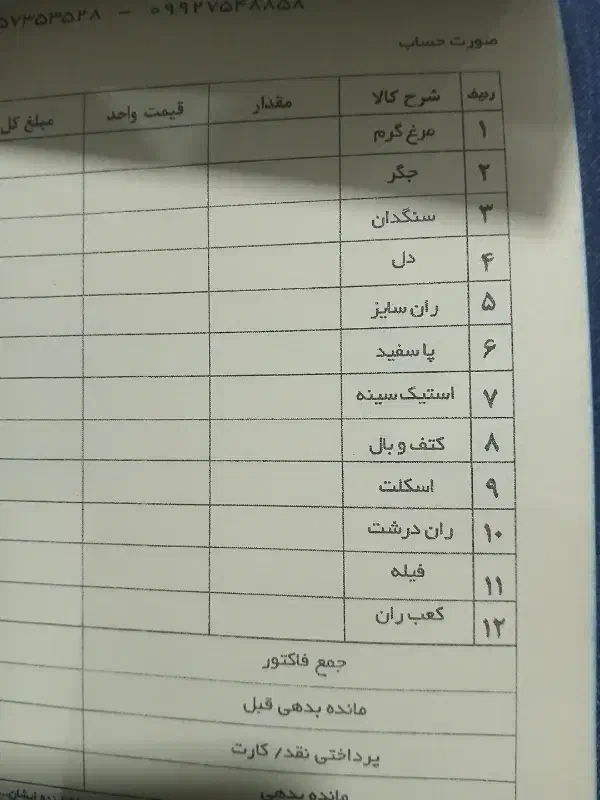 ۰۹۹۲۷۵۴۸۸۵۸ - ۵۷۳۵۳۵۲۸
صورت حساب
ردیف شرح کالا مقدار قیمت واحد مبلغ کل
۱ مرغ گرم
۲ جگر
۳ سنگدان
۴ دل
۵ ران سایز
۶ پا سفید
۷ استیک سینه
۸ کتف و بال
۹ اسکلت
۱۰ ران درشت
۱۱ فیله
۱۲ کعب ران
جمع فاکتور
مانده بدهی قبل
پرداختی نقد/ کارت
مانده بدهی